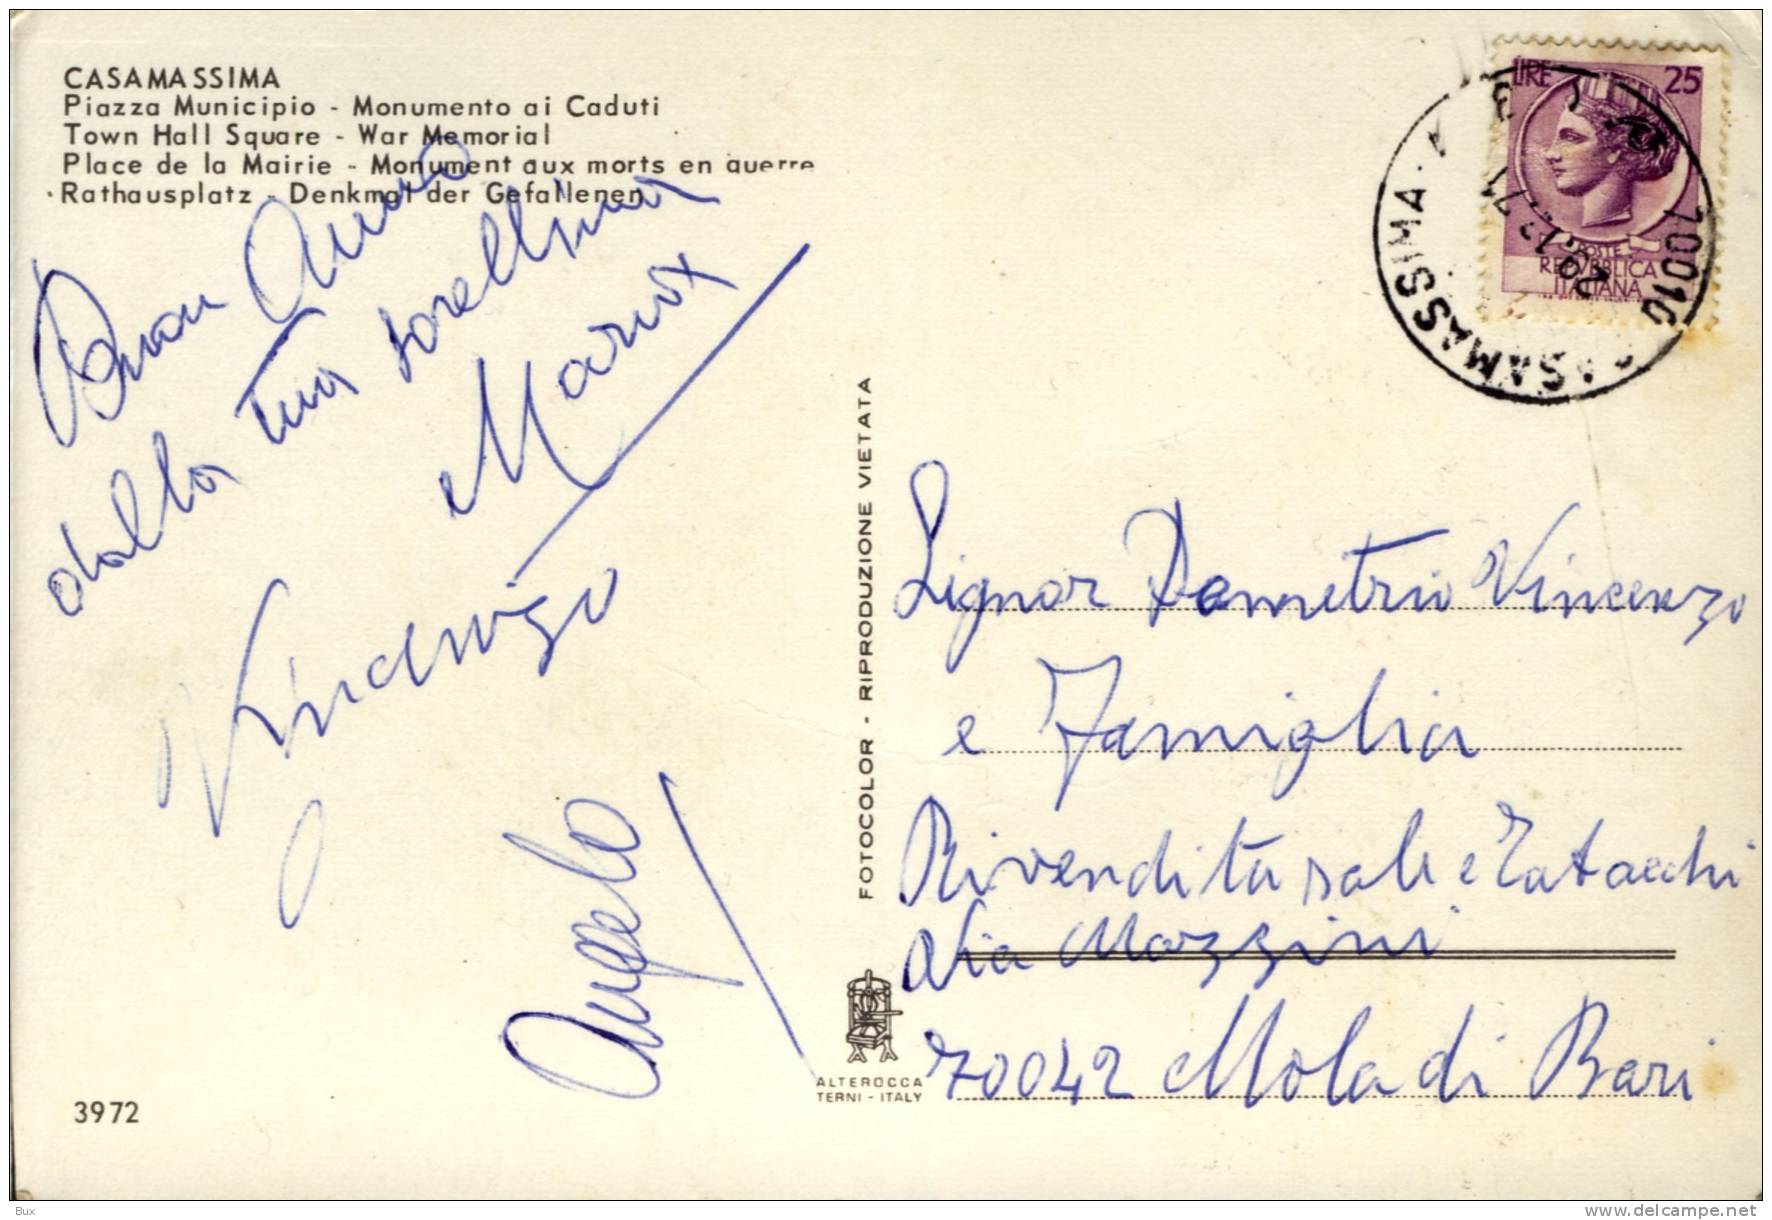 CASAMASSIMA
Piazza Municipio - Monumento ai Caduti
Town Hall Square - War Memorial
Place de la Mairie - Monument aux morts en guerre
Rathausplatz - Denkmal der Gefallenen
Buon Anno
dalla tua sorellina
Maria
Vincenzo
Angelo
3972
FOTOCOLOR - RIPRODUZIONE VIETATA
ALTEROCCA
TERNI - ITALY
LIRE 25
POSTE
REPUBBLICA
ITALIANA
70010 CASAMASSIMA
Signor Demetrio Vincenzo
e Famiglia
Rivendita sali e Tabacchi
Via Mazzini
70042 Mola di Bari
Bux
www.delcampe.net